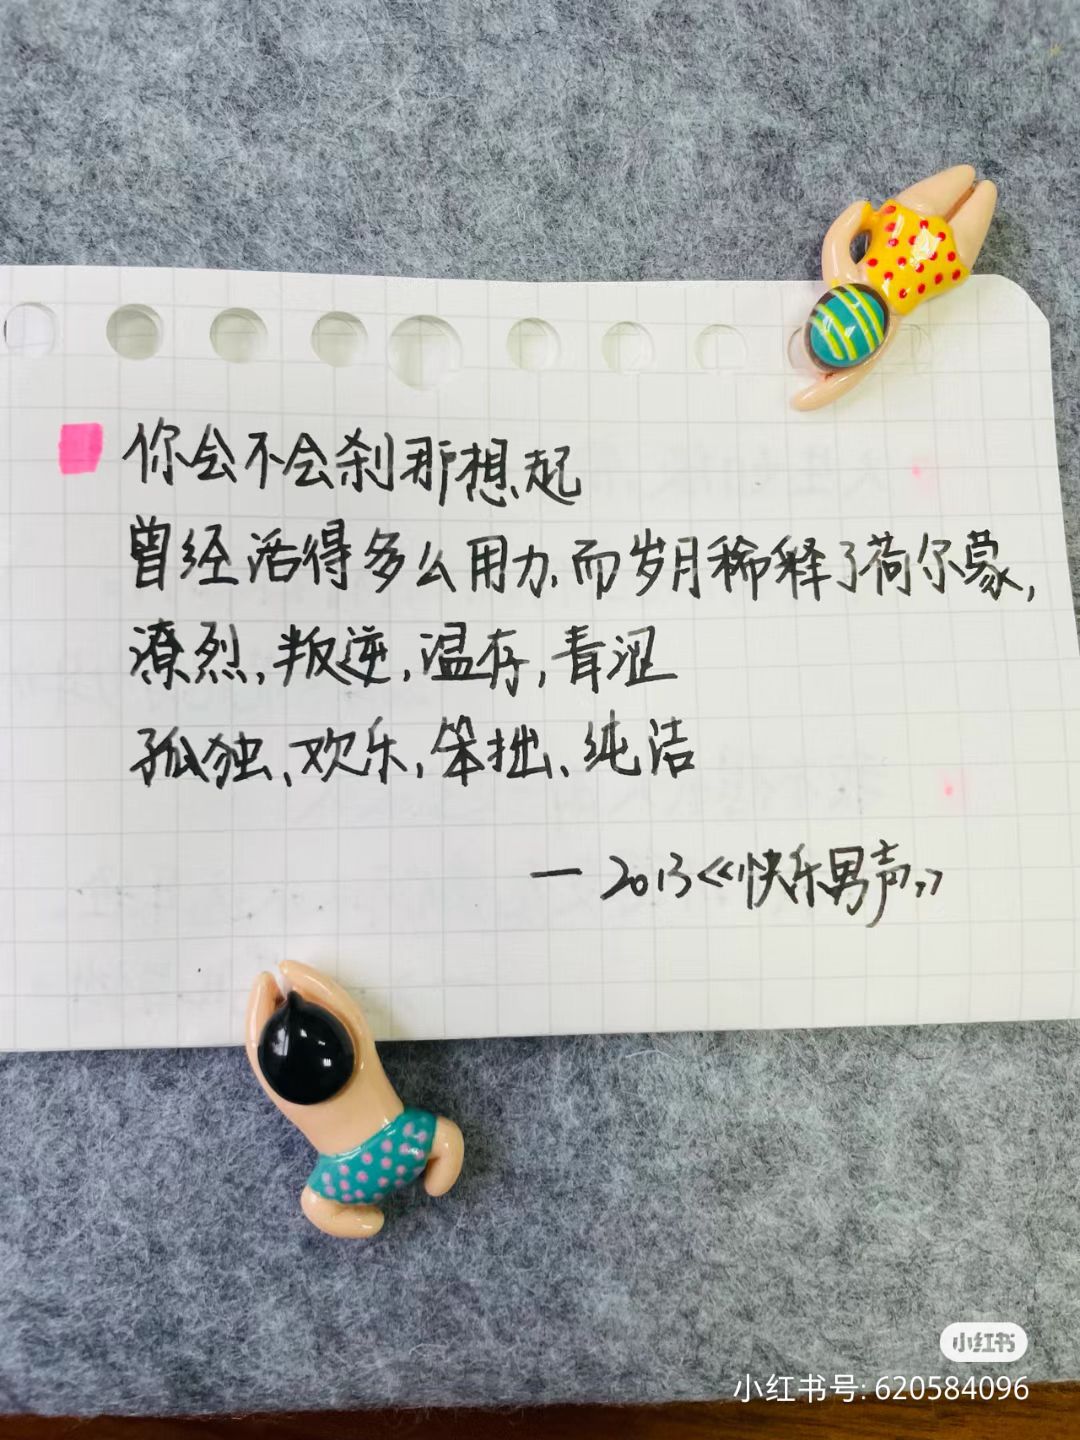 你会不会刹那想起
曾经活得多么用力,而岁月稀释了荷尔蒙,
潦烈,叛逆,温存,青涩
孤独、欢乐,笨拙、纯洁
— 2013《快乐男声》
小红书
小红书号: 620584096